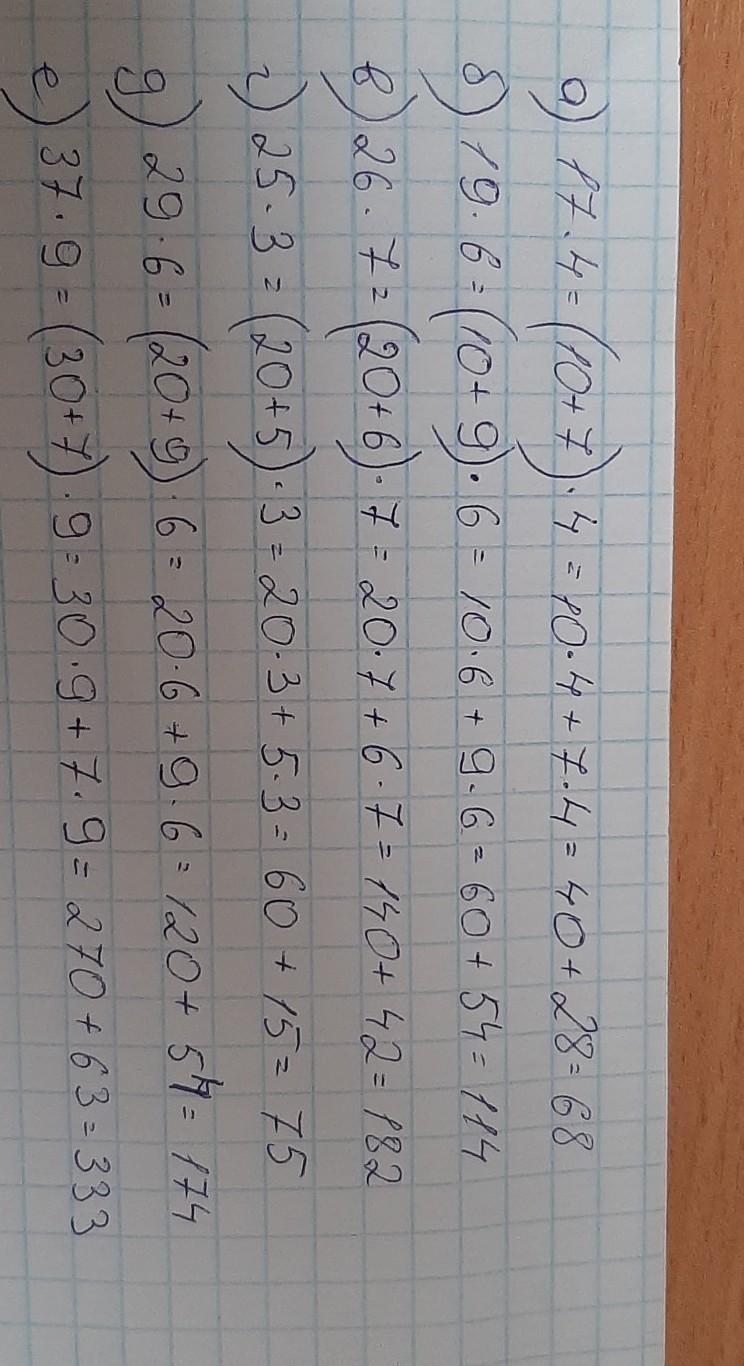 а) 17·4=(10+7)·4=10·4+7·4=40+28=68
б) 19·6=(10+9)·6=10·6+9·6=60+54=114
в) 26·7=(20+6)·7=20·7+6·7=140+42=182
г) 25·3=(20+5)·3=20·3+5·3=60+15=75
д) 29·6=(20+9)·6=20·6+9·6=120+54=174
е) 37·9=(30+7)·9=30·9+7·9=270+63=333